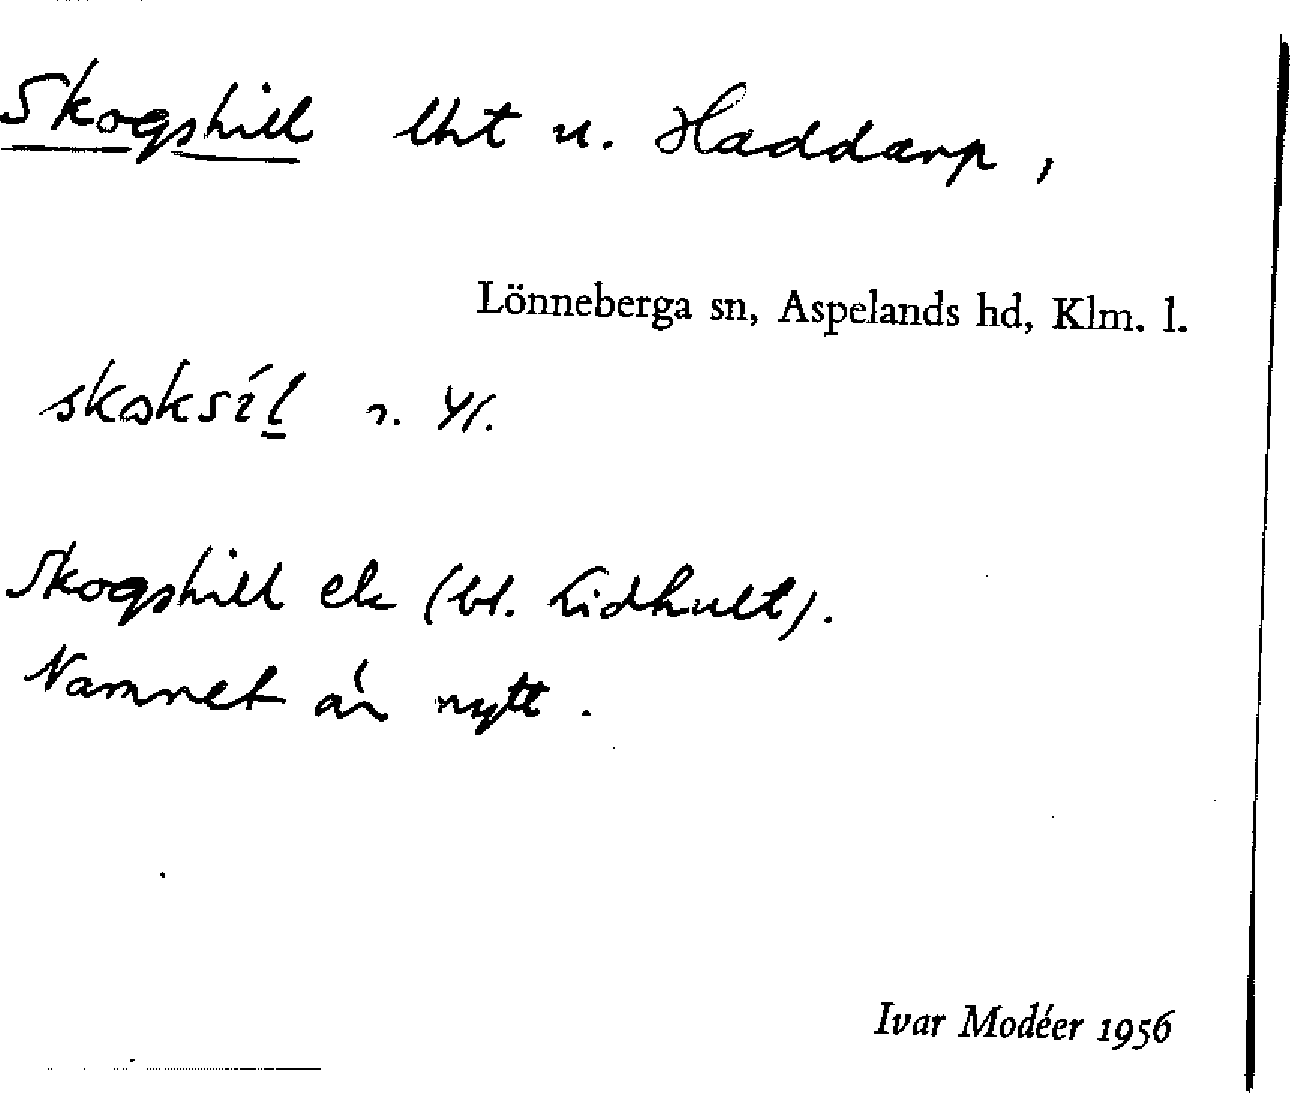 Skogshill lht u. Haddarp,
Lönneberga sn, Aspelands hd, Klm. l.
skoksíl
Skogshill ek (bl. Lidhult).
Namnet är nytt.
Ivar Modéer 1956